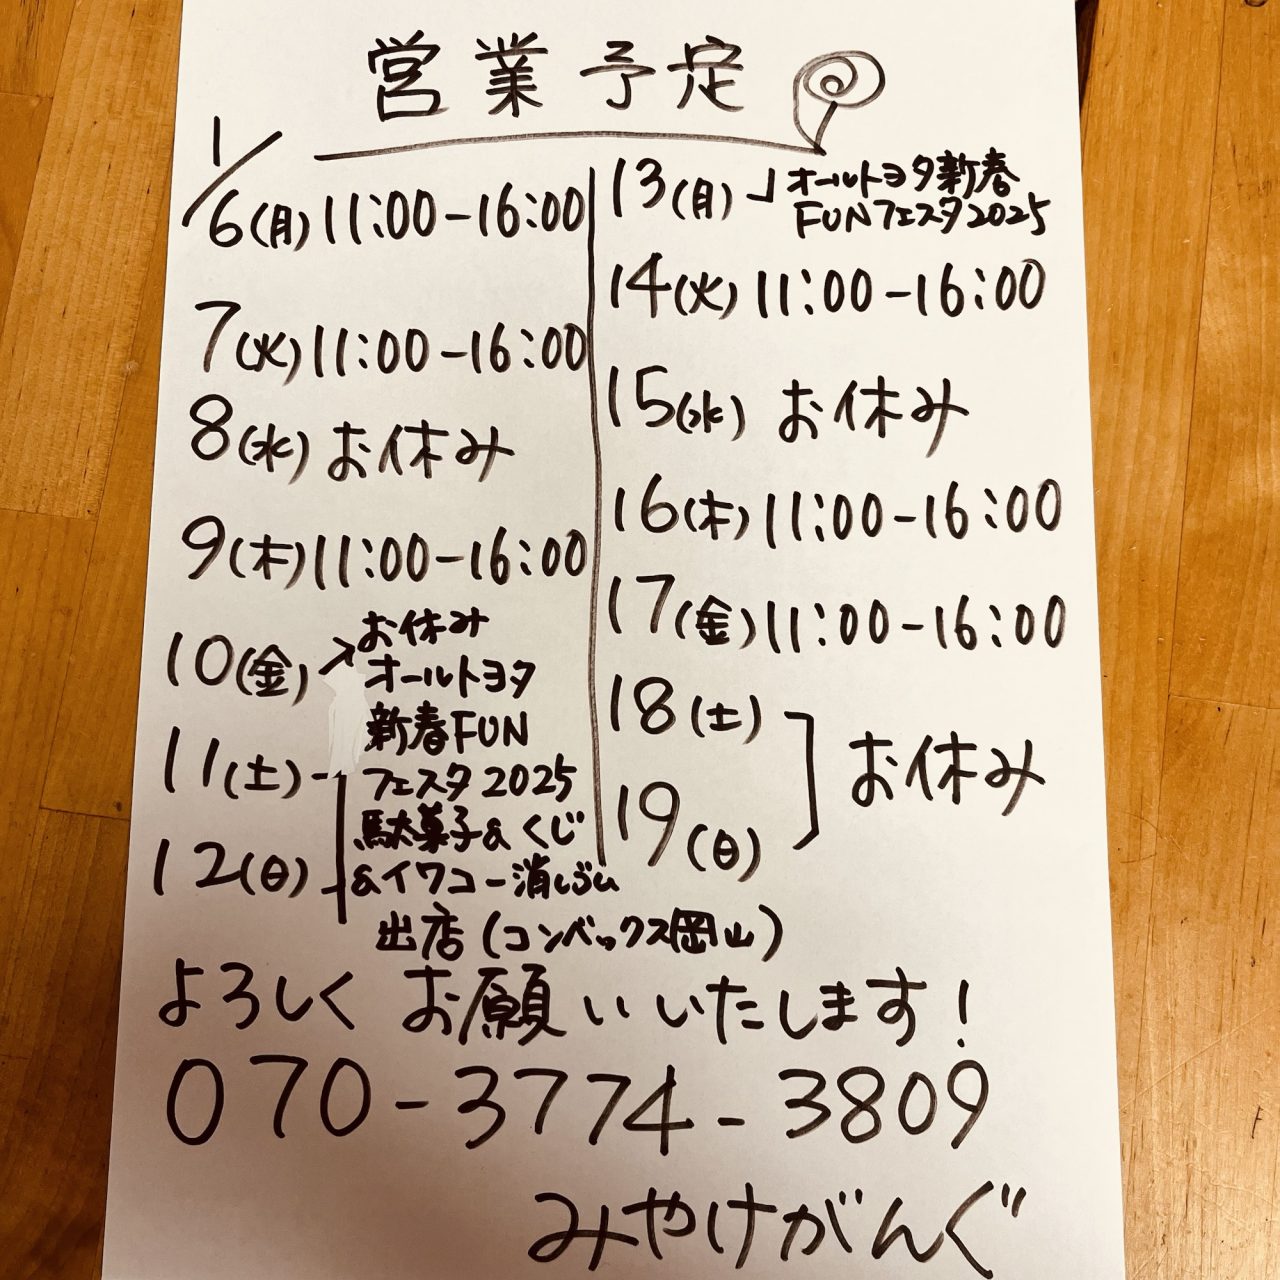 営業予定
1/6(月)11:00-16:00
7(火)11:00-16:00
8(水)お休み
9(木)11:00-16:00
10(金)→お休み
11(土)
12(日)
オールトヨタ
新春FUN
フェスタ2025
駄菓子&くじ
&イワコー消しゴム
出店(コンベックス岡山)
13(月)オールトヨタ新春
FUNフェスタ2025
14(火)11:00-16:00
15(水)お休み
16(木)11:00-16:00
17(金)11:00-16:00
18(土)
19(日)
お休み
よろしくお願いいたします!
070-3774-3809
みやけがんぐ